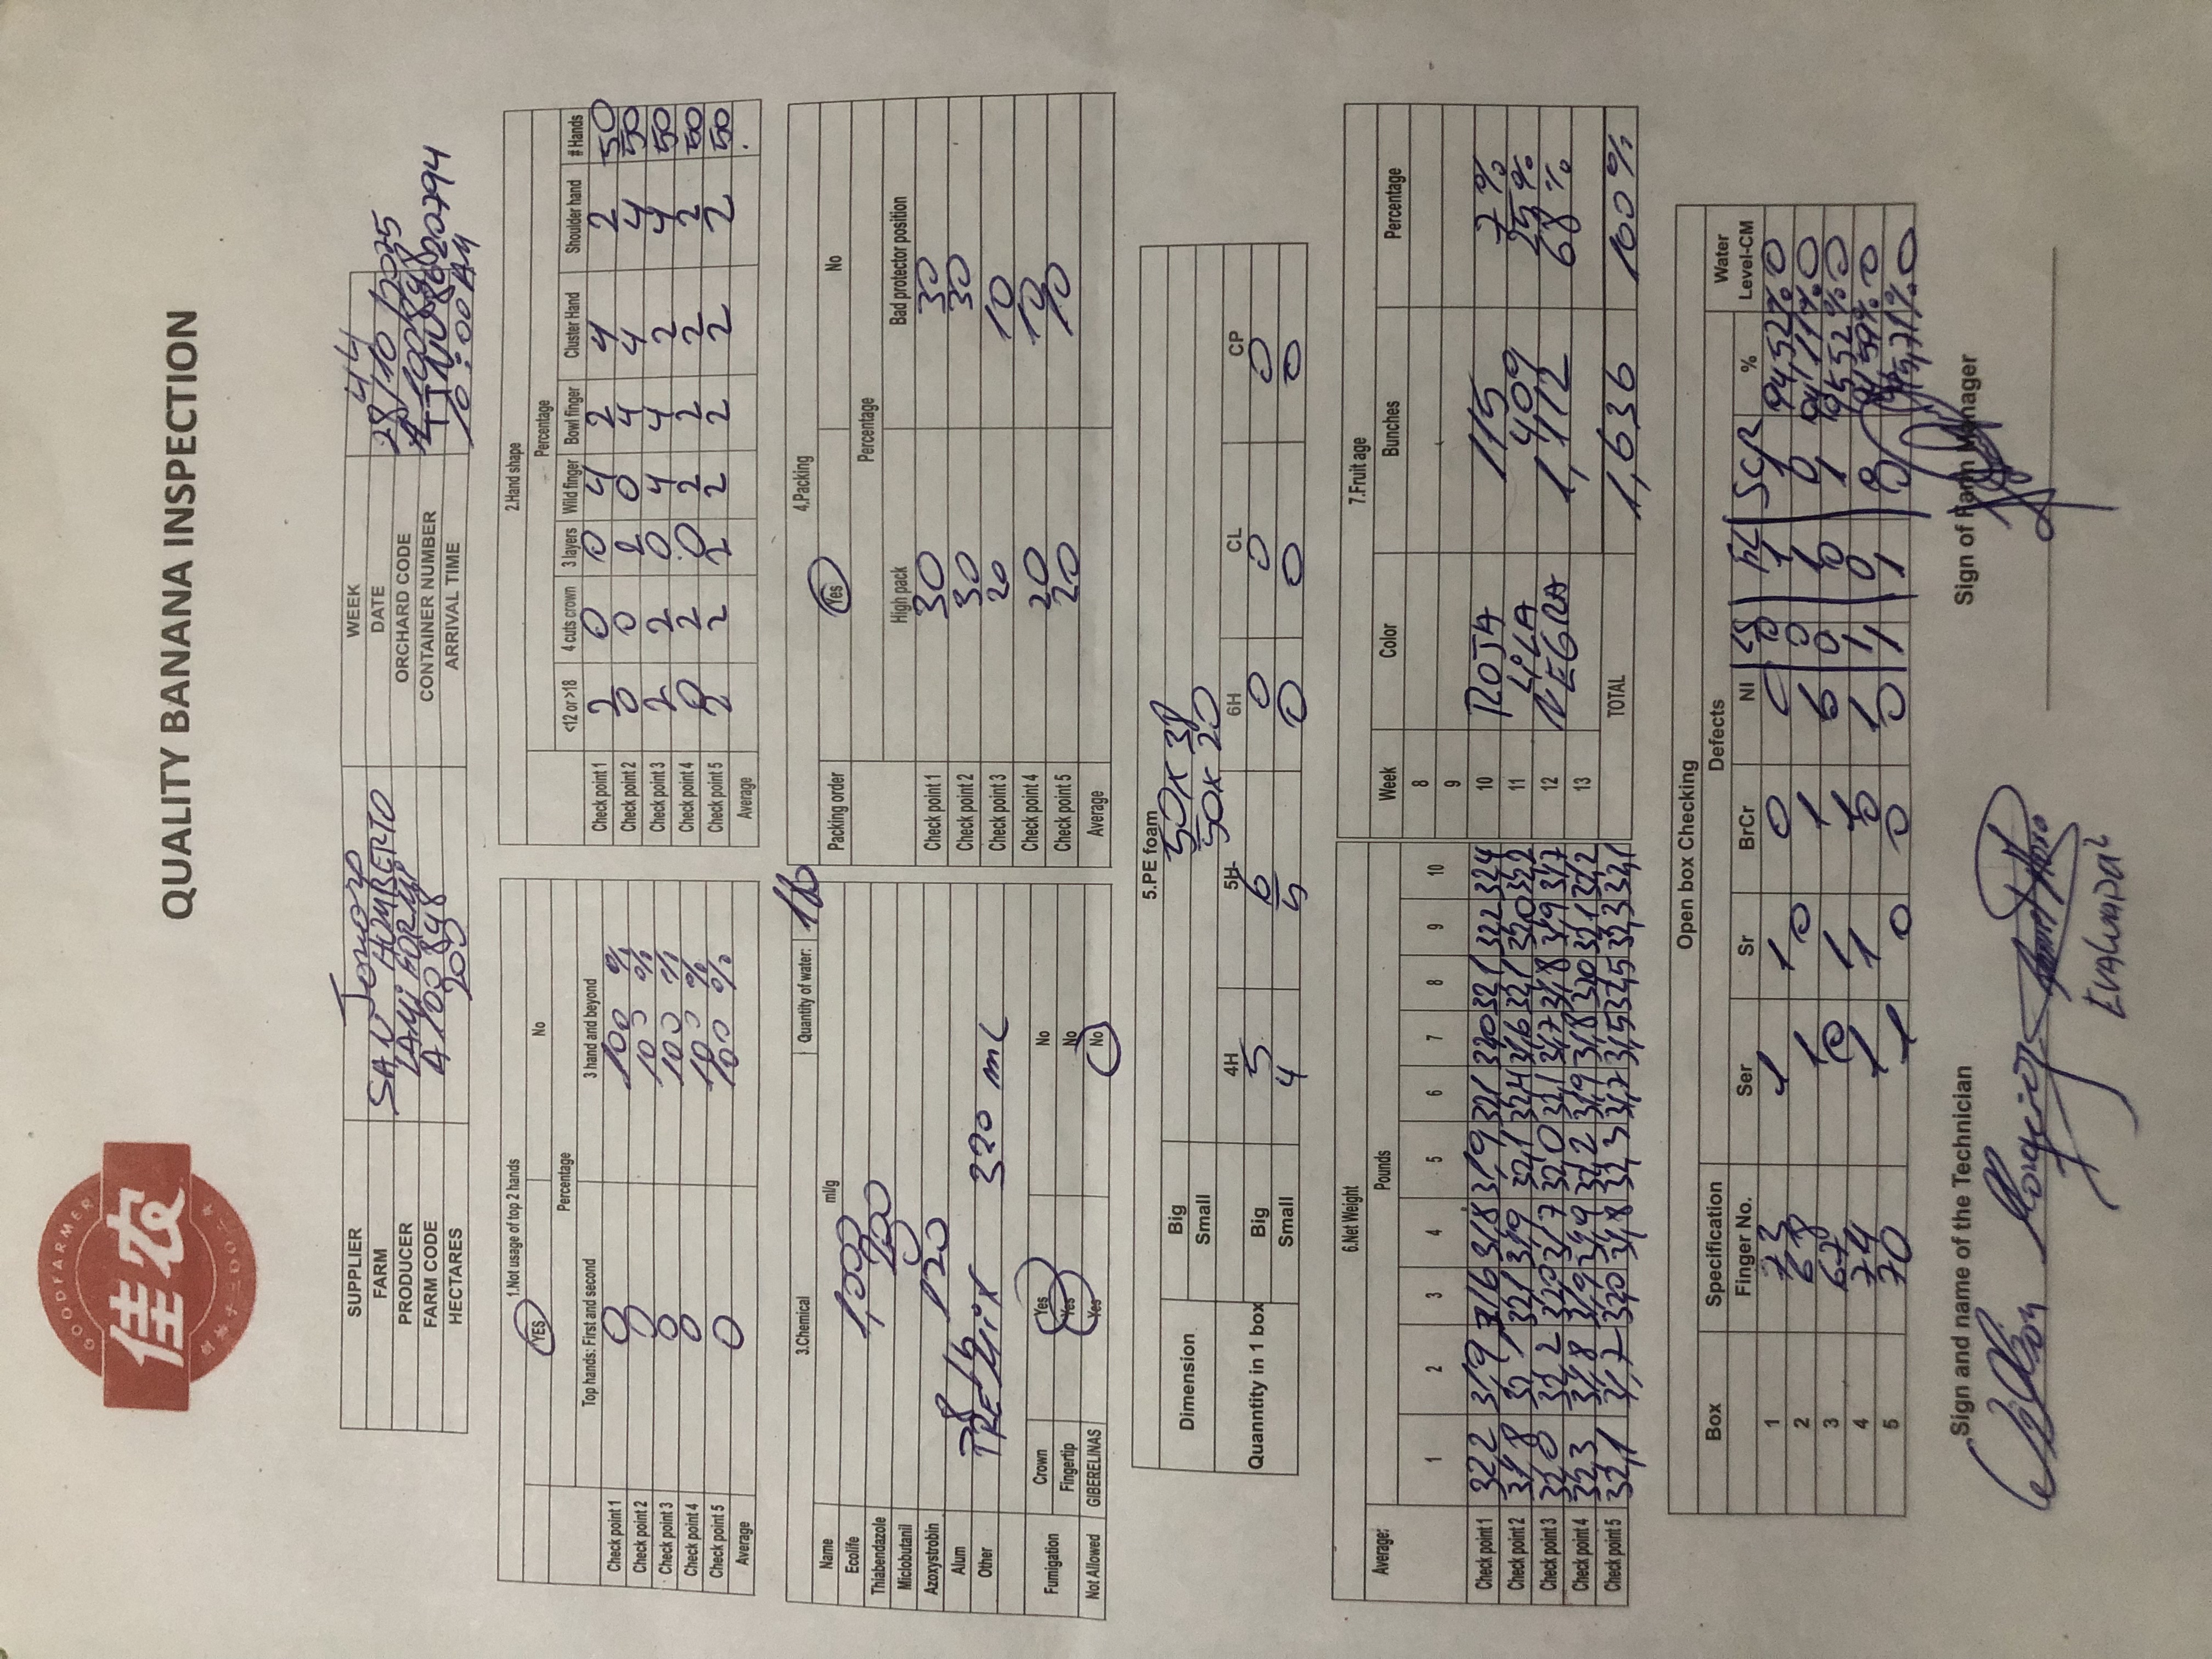 GOODFARMER
佳农
创始于二〇〇二年
QUALITY BANANA INSPECTION
SUPPLIER WEEK 44
FARM SAN HUMBERTO DATE 28/10/2025
PRODUCER ORCHARD CODE A100848
FARM CODE A100848 CONTAINER NUMBER
HECTARES 200 ARRIVAL TIME 10:00 AM
1.Not usage of top 2 hands
YES No
Percentage
Top hands: First and second 3 hand and beyond
Check point 1 0 100 %
Check point 2 0 100 %
Check point 3 0 100 %
Check point 4 0 100 %
Check point 5 0 100 %
Average
2.Hand shape
Percentage
<12 or >18 4 cuts crown 3 layers Wild finger Bowl finger Cluster Hand Shoulder hand # Hands
Check point 1 2 0 0 4 2 4 2 50
Check point 2 0 0 2 0 4 4 4 50
Check point 3 2 2 0 4 4 2 4 50
Check point 4 0 2 0 2 2 2 2 50
Check point 5 2 2 2 2 2 2 2 50
Average
3.Chemical Quantity of water:
Name ml/g
Ecolife 1,000
Thiabendazole 200
Miclobutanil 0
Azoxystrobin 120
Alum
Other 320 mL
Fumigation Crown Yes No
Fingertip Yes No
Not Allowed GIBERELINAS Yes No
4.Packing
Packing order Yes No
Percentage
High pack Bad protector position
Check point 1 30 30
Check point 2 30 30
Check point 3 20 10
Check point 4 20 10
Check point 5 20 10
Average
5.PE foam
Dimension Big 50x38
Small 50x20
4H 5H 6H CL CP
Quanntity in 1 box Big 5 6 0 0 0
Small 4 5 0 0 0
6.Net Weight
Average: Pounds
1 2 3 4 5 6 7 8 9 10
Check point 1 32,2 31,9 31,6 31,8 31,9 32,1 32,0 32,1 32,2 32,4
Check point 2 31,8 32,1 32,1 31,9 32,1 32,4 31,6 32,1 32,0 32,2
Check point 3 32,0 32,2 32,0 31,7 32,0 32,1 31,7 31,8 31,9 31,7
Check point 4 32,3 31,8 31,9 31,9 32,2 31,9 31,8 32,0 32,1 32,2
Check point 5 32,1 31,7 32,0 31,8 32,3 31,7 31,5 32,5 32,3 32,1
7.Fruit age
Week Color Bunches Percentage
8
9
10 ROJA 115 7%
11 LILA 409 25%
12 NEGRA 1,112 68%
13
TOTAL 1,636 100%
Open box Checking
Box Specification Defects Water
Finger No. Ser Sr BrCr NI FL SCR % Level-CM
1 73 1 1 0 0 0 1 1 94,52% 0
2 68 1 0 1 0 0 1 0 94,11% 0
3 67 0 1 1 0 0 0 1 95,52% 0
4 74 1 1 0 1 1 0 0 94,59% 0
5 70 1 0 0 0 1 1 0 95,71% 0
Sign and name of the Technician
Sign of Farm Manager